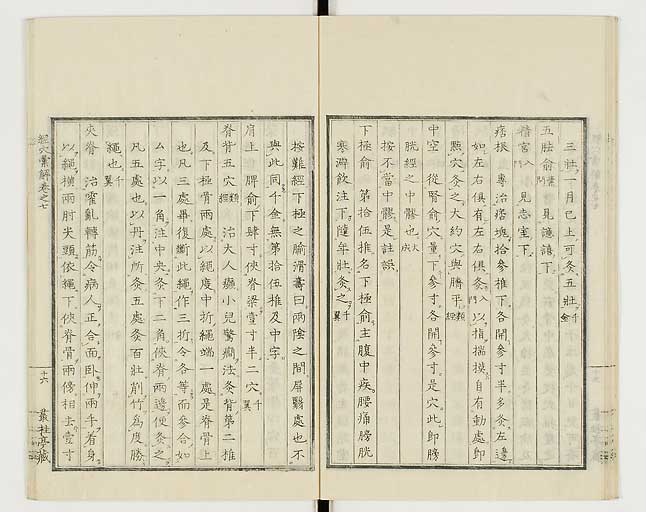 三壯、一月已上、可灸五壯、千金
五胠俞 類入門 見譩譆下、
精宮 入門 見志室下、
痞根 專治痞塊、拾參椎下、各開參寸半、多灸左邊、
如左右俱有、左右俱灸、入門 以指揣摸、自有動處、即
點穴灸之、大約穴與臍平、類經
中空 從腎俞穴量下參寸、各開參寸是穴、此即膀
胱經之中也、
按、不當中髎、是註誤、
下極俞 第拾伍椎名下極俞、主腹中疾、腰痛膀胱
寒澼飲注下、隨年壯灸之、千翼
按難經下極之腧、滑壽曰、兩陰之間、屏翳處也、不
與此同、千金無第拾伍椎及中字、
肩上 脾俞下肆寸俠脊梁壹寸半二穴、千翼
脊背五穴 類經 治大人癲小兒驚癇法、灸背第二椎
及下極骨兩處、以繩度中折繩端一處、是脊骨上
也、凡三處畢、復斷此繩作三折、令各等而參合、如
厶字、以一角注中央灸、下二角俠脊兩邊便灸之、
凡五處也、以丹注所灸五處、灸百壯、削竹為度、勝
繩也、千翼
夾脊 治霍亂轉筋、令病人正合面臥、伸兩手着身、
以繩橫兩肘尖頭、依繩下俠脊骨兩傍、相去壹寸
經穴彙解卷之七
十六
叢桂亭藏